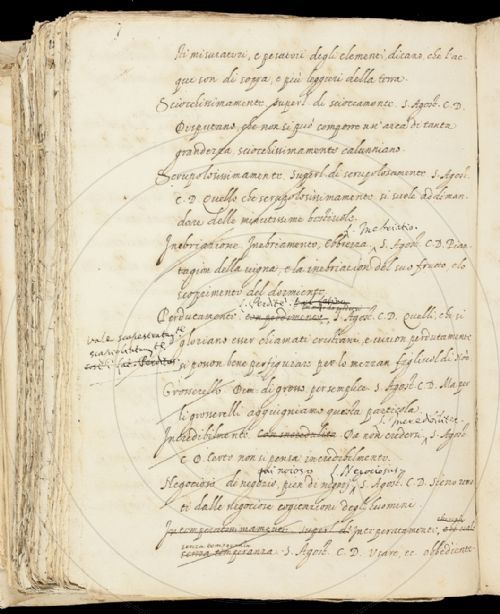 Ni misuratori, e pesatori degli elementi dicano, che l'ac
que son di sopra, e più leggieri della terra.
Scioccissimamente, superl. di scioccamente. S. Agost. C. D.
Disputano, che non si può comporre un'arca di tanta
grandezza, scioccissimamente calunniano.
Scrupolosissimamente. Superl. di scrupolosamente S. Agost.
C. D. Quello, che scrupolosissimamente si suole addiman
dare delle minutissime bestivole.
Inebriatio.
Inebriazione. Inebriamento, Ebbrezza, S. Agost. C. D. Pian
tagion della vigna, e la inebriazion del suo frutto, e lo
scoprimento del dormiente.
S. Perdite.
Perdutamente. con perdimento. S. Agost. C. D. Quelli, che si
vale scapestratam.te
gloriano esser chiamati cristiani, e vivon perdutamente
si posson bene perfigurare per lo mezzan figliuol di Noè
Grosserello. Dim. di grosso, per semplice. S. Agost. C. D. Ma per
li grosserelli aggiugniamo questa particola.
Incredibilmente. Con incredulità. Da non credersi, S. Agost.
C. D. Certo non si pensa incredibilmente.
Negociosus
Negocioso. di negozio, pien di negozj, S. Agost. C. D. Sieno venu
ti dalle negociose cogitazioni degli huomini.
Intemperatissimamente. Superl. di Intemperatamente,
senza temperanza
senza temperanza. S. Agost. C. D. Usare, ec. obbediente